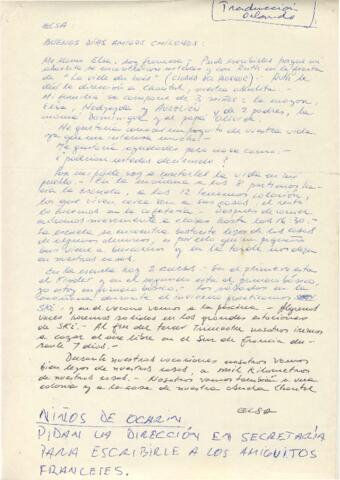 Traducción
Orlando
ELSA
BUENOS DÍAS AMIGOS CHILENOS:
Me llamo Elsa, soy francesa. Pude escribirles porque mi
abuelita se encontró con ustedes y con Ruth en la fiesta
de "La ville du bois" (CIUDAD DE MADERA). Ruth le
dió la dirección a Chantal, nuestra abuelita.
Mi familia se compone de 3 niños: la mayor,
Elsa, Nadejda y AURELIEN y de 2 padres, la
mamá Dominique y el papá Olivier.
Me gustaría conocer un poquito de vuestra vida
ya que me interesa mucho.
Me gustaría ayudarles pero no se como.
¿Podrían ustedes decírmelo?
Por mi parte voy a contarles la vida en mi
pueblo. En la mañana a las 8 partimos ha-
cia la escuela, a las 12 tenemos colación,
los que viven cerca van a sus casas, el resto
lo hacemos en la cafetería. Después de comer
entramos nuevamente a clases hasta las 16:30.
La escuela se encuentra bastante lejos de las casas
de algunos alumnos, es por ello que un pequeño
bus viene a buscarnos y en la tarde nos deja
en nuestras casas.
En la escuela hay 2 cursos. En el primero está
el Kinder y en el segundo está el primero básico,
yo estoy en primero básico. Los sábados en la
mañana durante el invierno practicamos
SKí y en el verano vamos a la piscina. Algunas
veces hacemos salidas en las grandes estaciones
de SKí. Al fin del tercer Trimestre nosotros iremos
a cazar al aire libre en el Sur de Francia du-
rante 7 días.
Durante nuestras vacaciones nosotros vamos
bien lejos de nuestras casas, a mil kilómetros
de nuestras casas. Nosotros vamos también a una
colonia y a la casa de nuestra abuela Chantal
ELSA
NIÑOS DE OCARIN
PIDAN LA DIRECCIÓN EN SECRETARÍA
PARA ESCRIBIRLE A LOS AMIGUITOS
FRANCESES.